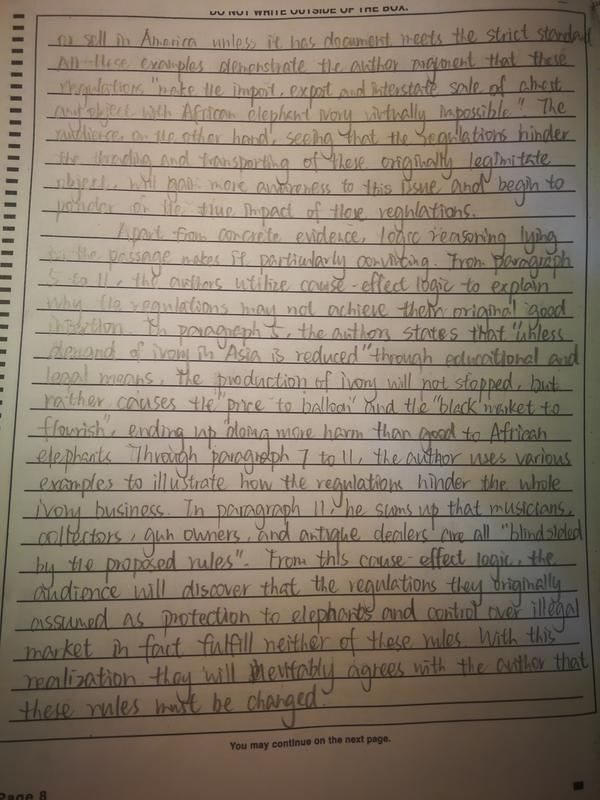 DO NOT WRITE OUTSIDE OF THE BOX.
or sell in America unless it has document meets the strict standard
All these examples demonstrate the author argument that these
regulations "make the import, export and interstate sale of almost
any object with African elephant ivory virtually impossible". The
audience, on the other hand, seeing that the regulations hinder
the thrading and transporting of these originally legimitate
object, will gain more awareness to this issue and begin to
ponder on the true impact of those regulations.
Apart from concrete evidence, logic reasoning lying
in the passage makes it particularly convincing. From paragraph
5 to 11, the authors utilize cause-effect logic to explain
why the regulations may not achieve their original good
intention. In paragraph 5, the authors states that "unless
demand of ivory in Asia is reduced" through educational and
legal means, the production of ivory will not stopped, but
rather causes the "price to balloon" and the "black market to
flourish", ending up "doing more harm than good to African
elephants. Through paragraph 7 to 11, the author uses various
examples to illustrate how the regulations hinder the whole
ivory business. In paragraph 11, he sums up that musicians,
collectors, gun owners, and antique dealers are all "blindsided
by the proposed rules". From this cause-effect logic, the
audience will discover that the regulations they originally
assumed as protection to elephants and control over illegal
market in fact fulfill neither of these rules. With this
realization they will inevitably agrees with the author that
these rules must be changed.
You may continue on the next page.
Page 8